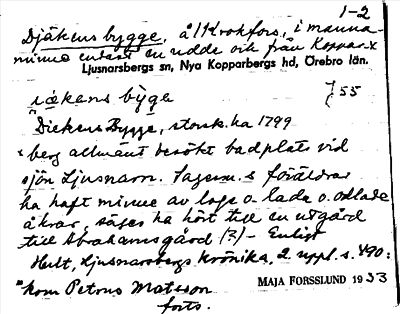 1-2
Djäkens bygge, å 11 Krokfors, i manna-
minne endast en udde och från Koppar x
Ljusnarsbergs sn, Nya Kopparbergs hd, Örebro län.
᷈ıækens bỳge } 55
"Diekens Bygge, storsk. ha 1799
berg allmänt besökt badplats vid
sjön Ljusnarn. Sagesm. s föräldrar
ha haft minne av loge o. lada o. odlade
åkrar, säges ha hört till en utgård
till Abrahamsgård (3) - Enligt
Hult, Ljusnarsbergs krönika, 2. uppl. s. 490:
"kom Petrus Matsson
MAJA FORSSLUND 1933
forts.